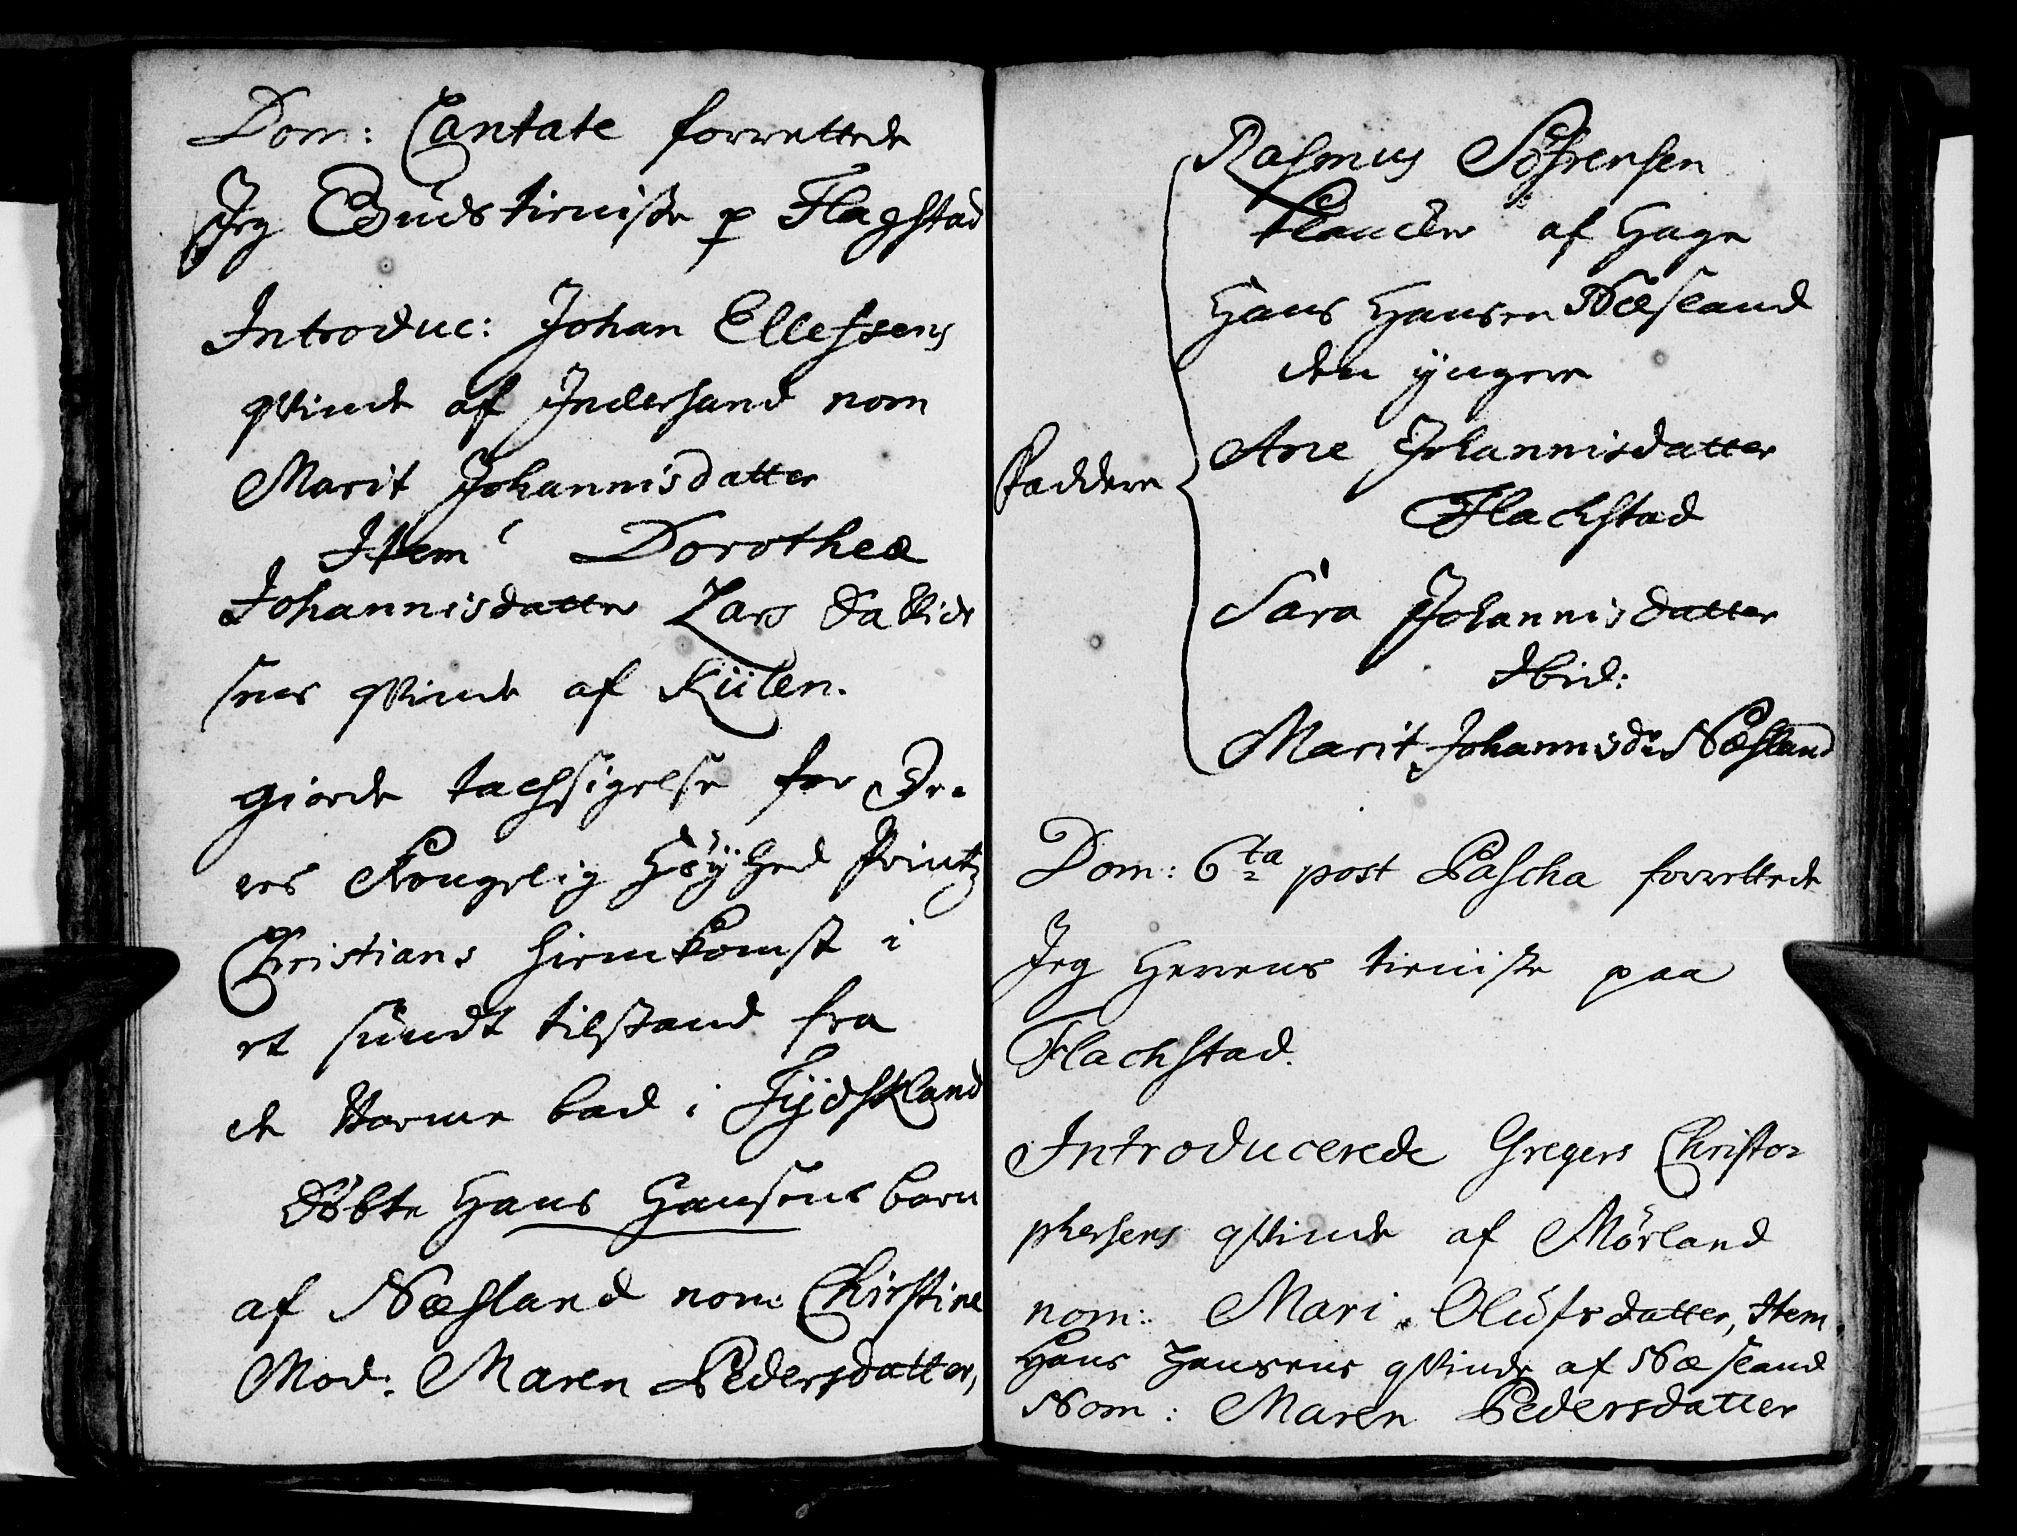 Dom: Cantate forrettede
Jeg Gudstieniste p Flagstad
Introduc: Johan Ellefsens
qvinde af Indersand nom
Marit Johannisdatter
Item Dorothea
Johannisdatter Lars David
sens qvinde af Kiilen.
giorde tachsigelse for De-
res Kongelig Höÿhed Printz
Christians hiemkomst i
et sundt tilstand fra
de Varme bad i Tÿdskland
döbte Hans Hansens barn
af Næsland nom: Christine
Mod: Maren Pedersdatter,
Rasmus Söfrensen
af Hage
Hans Hansen Næsland
den ÿngere
Ane Johannisdatter
Faddere
Flachstad
Sara Johannisdatter
Ibid:
Marit Johannisdr Næsland
Dom: 6ta post Pascha forrettede
Jeg Herrens tieniste paa
Flachstad.
Introducerede Gregers Christo-
phersens qvinde af Mörland
nom: Mari Olüfsdatter, Item
Hans Hansens qvinde af Næsland
Nom: Maren Pedersdatter